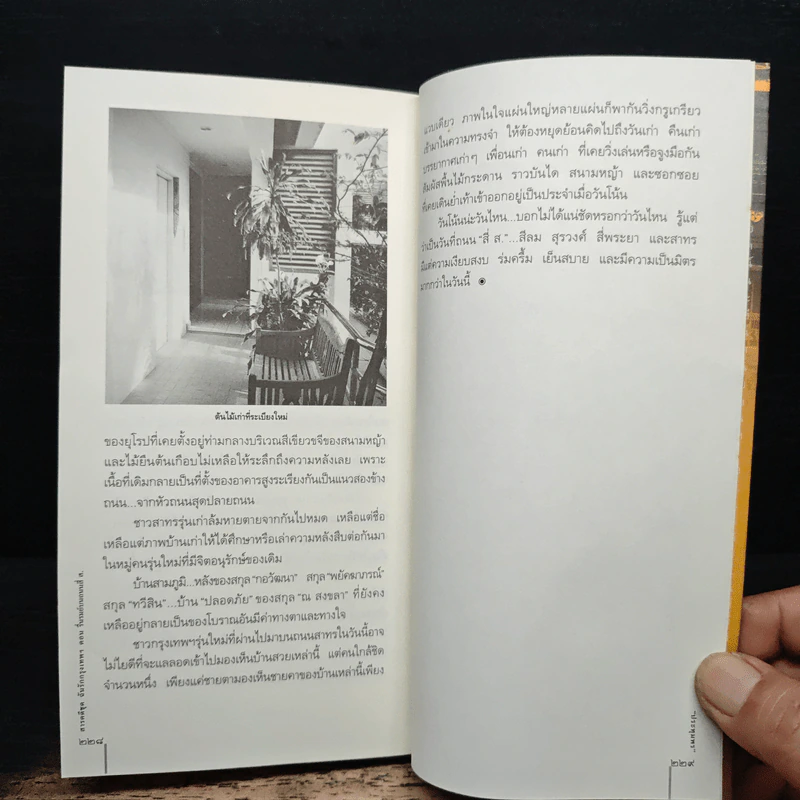 ต้นไม้เก่าที่ระเบียงใหม่
ของยุโรปที่เคยตั้งอยู่ท่ามกลางบริเวณสีเขียวขจีของสนามหญ้า
และไม้ยืนต้นเกือบไม่เหลือให้ระลึกถึงความหลังเลย เพราะ
เนื้อที่เดิมกลายเป็นที่ตั้งของอาคารสูงระเรียงกันเป็นแนวสองข้าง
ถนน...จากหัวถนนสุดปลายถนน
ชาวสาทรรุ่นเก่าล้มหายตายจากกันไปหมด เหลือแต่ชื่อ
เหลือแต่ภาพบ้านเก่าให้ได้ศึกษาหรือเล่าความหลังสืบต่อกันมา
ในหมู่คนรุ่นใหม่ที่มีจิตอนุรักษ์ของเดิม
บ้านสามภูมิ...หลังของสกุล "กอวัฒนา" สกุล "พยัคฆาภรณ์"
สกุล "ทวีสิน"...บ้าน "ปลอดภัย" ของสกุล "ณ สงขลา" ที่ยังคง
เหลืออยู่กลายเป็นของโบราณอันมีค่าทางตาและทางใจ
ชาวกรุงเทพฯรุ่นใหม่ที่ผ่านไปมาบนถนนสาทรในวันนี้อาจ
ไม่ไยดีที่จะแลลอดเข้าไปมองเห็นบ้านสวยเหล่านี้ แต่คนใกล้ชิด
จำนวนหนึ่ง เพียงแค่ชายตามองเห็นชายคาของบ้านเหล่านี้เพียง
สารคดีชุด ฉันรักกรุงเทพฯ ตอน
๒๒๘
แวบเดียว ภาพในใจแผ่นใหญ่หลายแผ่นก็พากันวิ่งกรูเกรียว
เข้ามาในความทรงจำ ให้ต้องหยุดย้อนคิดไปถึงวันเก่า คืนเก่า
บรรยากาศเก่าๆ เพื่อนเก่า คนเก่า ที่เคยวิ่งเล่นหรือจูงมือกัน
สัมผัสพื้นไม้กระดาน ราวบันได สนามหญ้า และซอกซอย
ที่เคยเดินย่ำเท้าเข้าออกอยู่เป็นประจำเมื่อวันโน้น
วันโน้นน่ะวันไหน...บอกไม่ได้แน่ชัดหรอกว่าวันไหน รู้แต่
ว่าเป็นวันที่ถนน "สี่ ส."...สีลม สุรวงศ์ สี่พระยา และสาทร
มีแต่ความเงียบสงบ ร่มครึ้ม เย็นสบาย และมีความเป็นมิตร
มากกว่าในวันนี้
๒๒๙